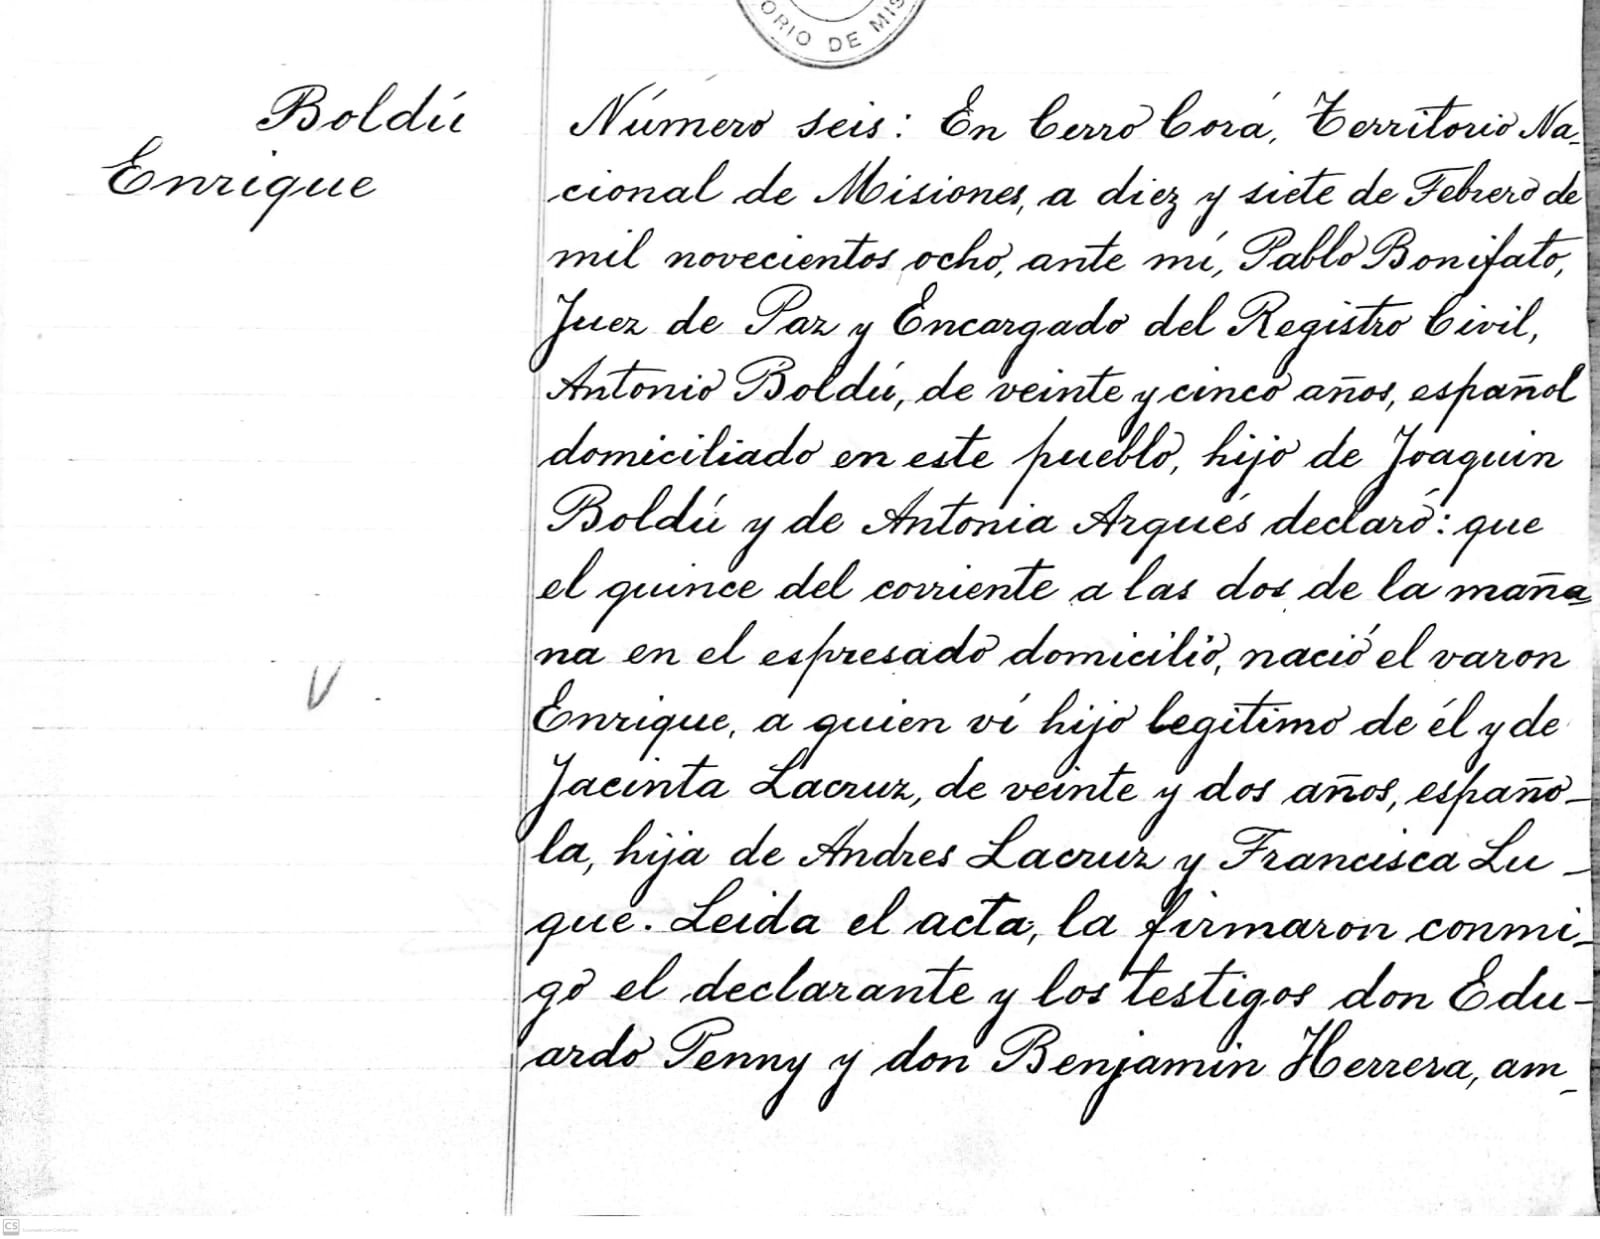 ORIO DE MIS
Boldú
Enrique
Número seis: En Cerro Corá, Territorio Na-
cional de Misiones, a diez y siete de Febrero de
mil novecientos ocho, ante mí, Pablo Bonifato,
Juez de Paz y Encargado del Registro Civil,
Antonio Boldú, de veinte y cinco años, español
domiciliado en este pueblo, hijo de Joaquin
Boldú y de Antonia Arqués declaró: que
el quince del corriente a las dos de la maña-
na en el espresado domicilio, nació el varon
Enrique, a quien ví hijo legitimo de él y de
Jacinta Lacruz, de veinte y dos años, españo-
la, hija de Andres Lacruz y Francisca Lu-
que. Leida el acta, la firmaron conmi-
go el declarante y los testigos don Edu-
ardo Penny y don Benjamin Herrera, am-
CS